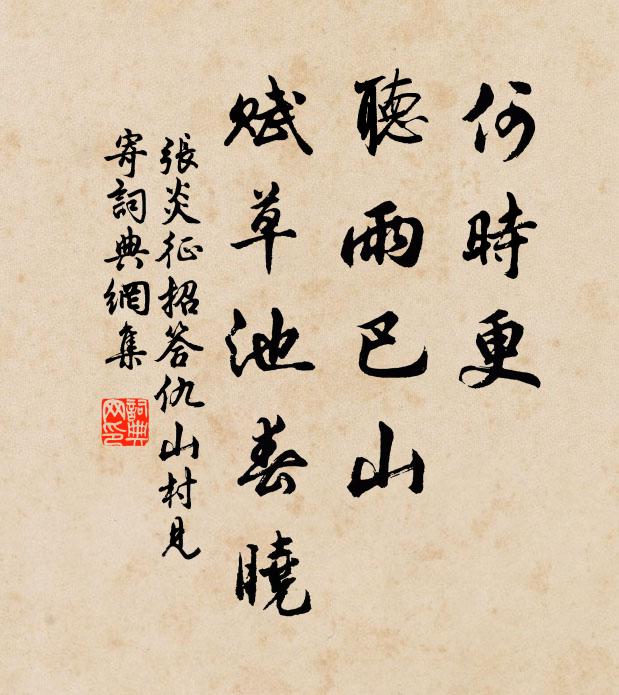 何時更
聽雨巴山
賦草池春曉
張炎征招答仇山村見
寄詞典網集
詞典网印